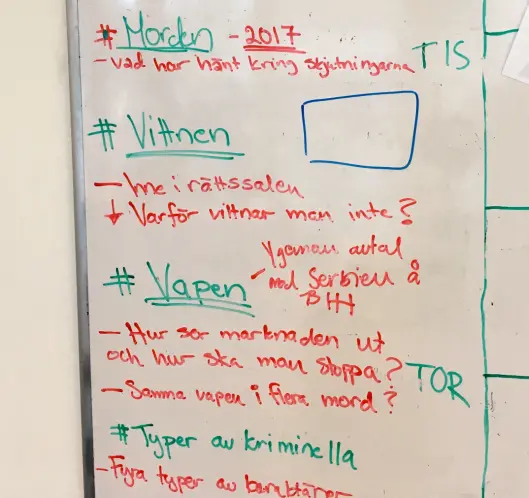 # Morden - 2017
- vad har hänt kring skjutningarna TIS
# Vittnen
- Inne i rättssalen
↓ Varför vittnar man inte?
Ygeman avtal
# Vapen - med Serbien å
BHH
- Hur ser marknaden ut
och hur ska man stoppa?
TOR
- Samma vapen i flera mord?
# Typer av kriminella
- Fyra typer av karaktärer